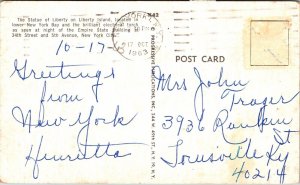 The Statue of Liberty on Liberty Island, located in
lower New York Bay and the brilliant electrical torch
as seen at night of the Empire State Building at
34th Street and 5th Avenue, New York City.
10-17-
17 OCT
1963
POST CARD
Greetings
from
New York
Henrietta
Mrs John
Trager
3936
St
Louisville Ky
40214